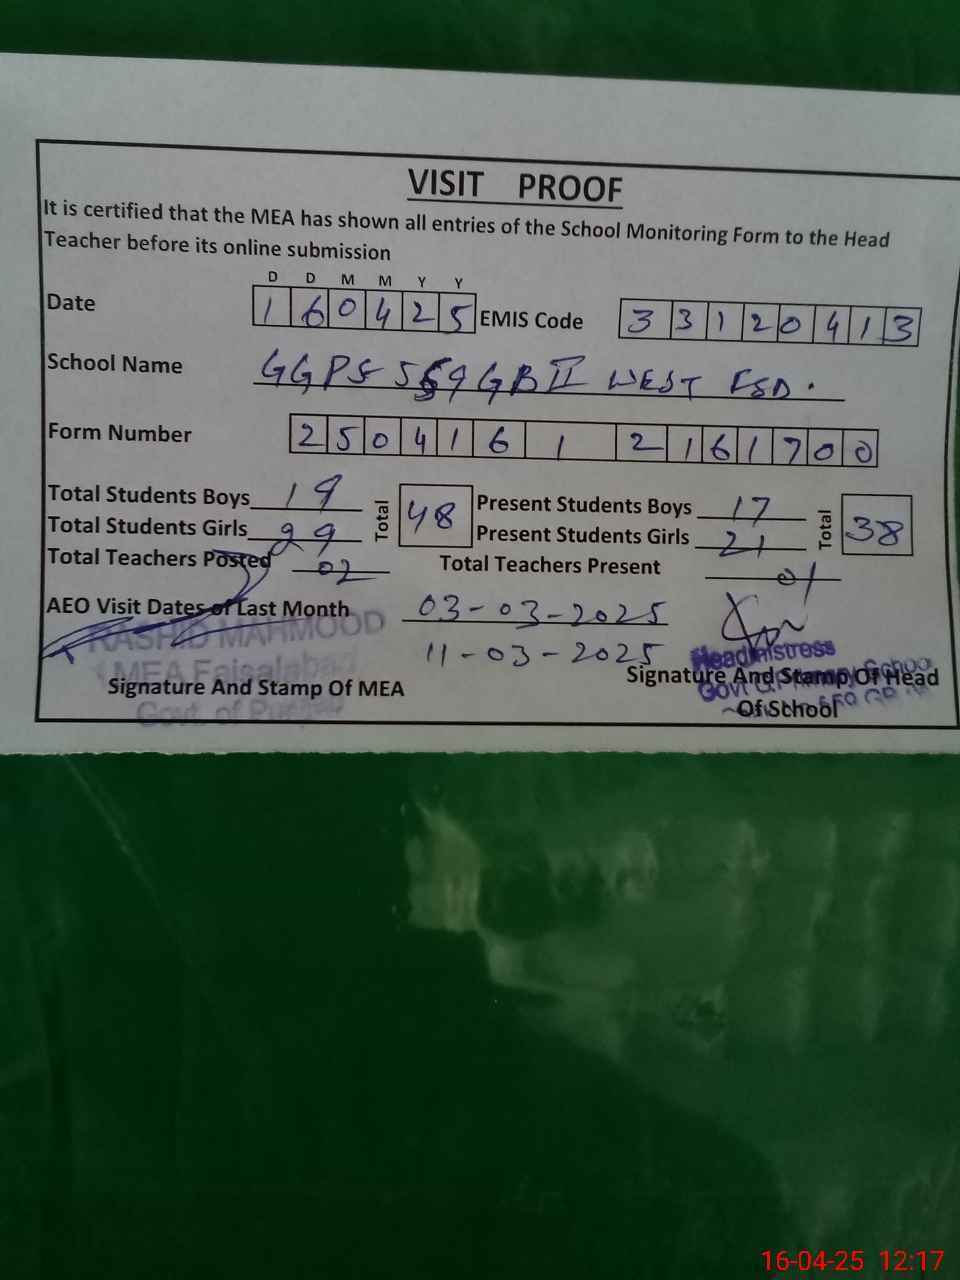 VISIT PROOF
It is certified that the MEA has shown all entries of the School Monitoring Form to the Head
Teacher before its online submission
D D M M Y Y
Date 1 6 0 4 2 5 EMIS Code 3 3 1 2 0 4 1 3
School Name GGPS 569 GB II WEST FSD.
Form Number 2 5 0 4 1 6 1 2 1 6 1 7 0 0
Total Students Boys 19 Total 48 Present Students Boys 17 Total 38
Total Students Girls 29 Present Students Girls 21
Total Teachers Posted 02 Total Teachers Present 01
AEO Visit Dates of Last Month 03-03-2025
RASHID MAHMOOD
11-03-2025
MEA Faisalabad
Headmistress
Signature And Stamp Of MEA
Signature And Stamp Of Head
Of School
Govt. of Punjab
16-04-25 12:17